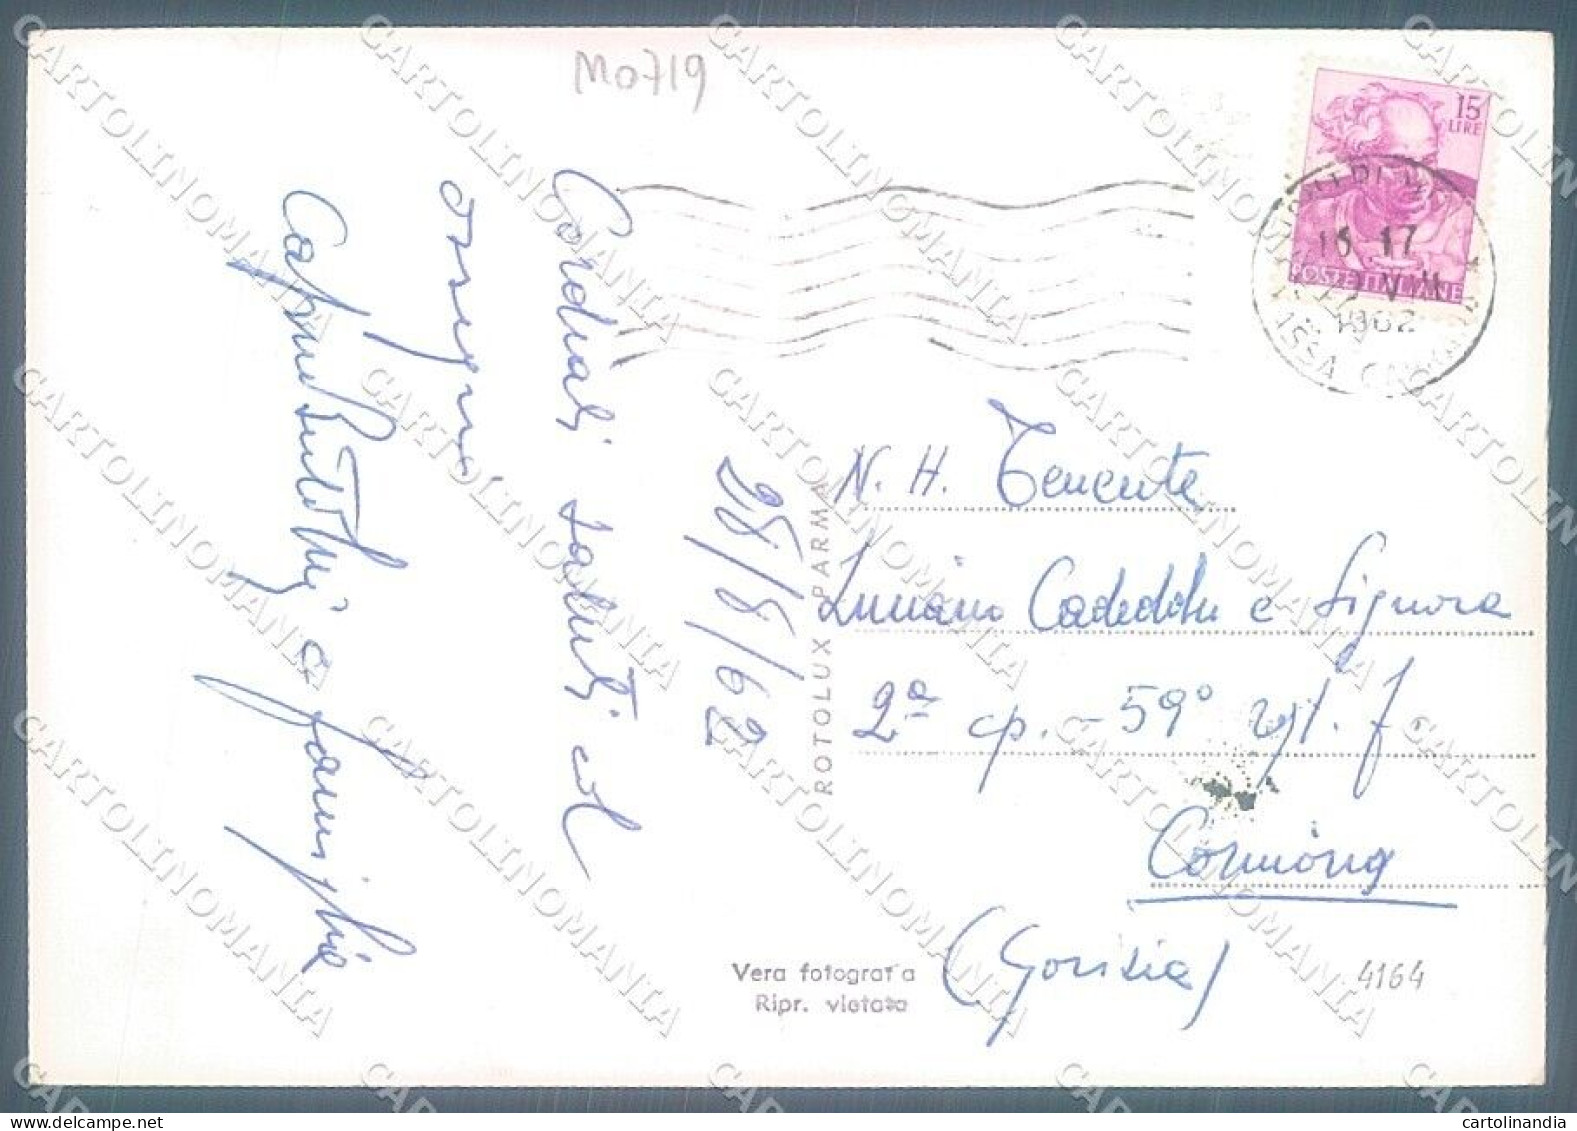 Mo719
15
LIRE
POSTE ITALIANE
16 17
VIII
1962
Cordiali saluti ed
28/8/62
e famiglia
ROTOLUX PARMA
N. H. Tenente
Luciano Cadeddu e Signora
2ª cp. - 59° rgt. f.
Cormòns
(Gorizia)
Vera fotografia
Ripr. vietata
4164
CARTOLINOMANIA
cartolinandia